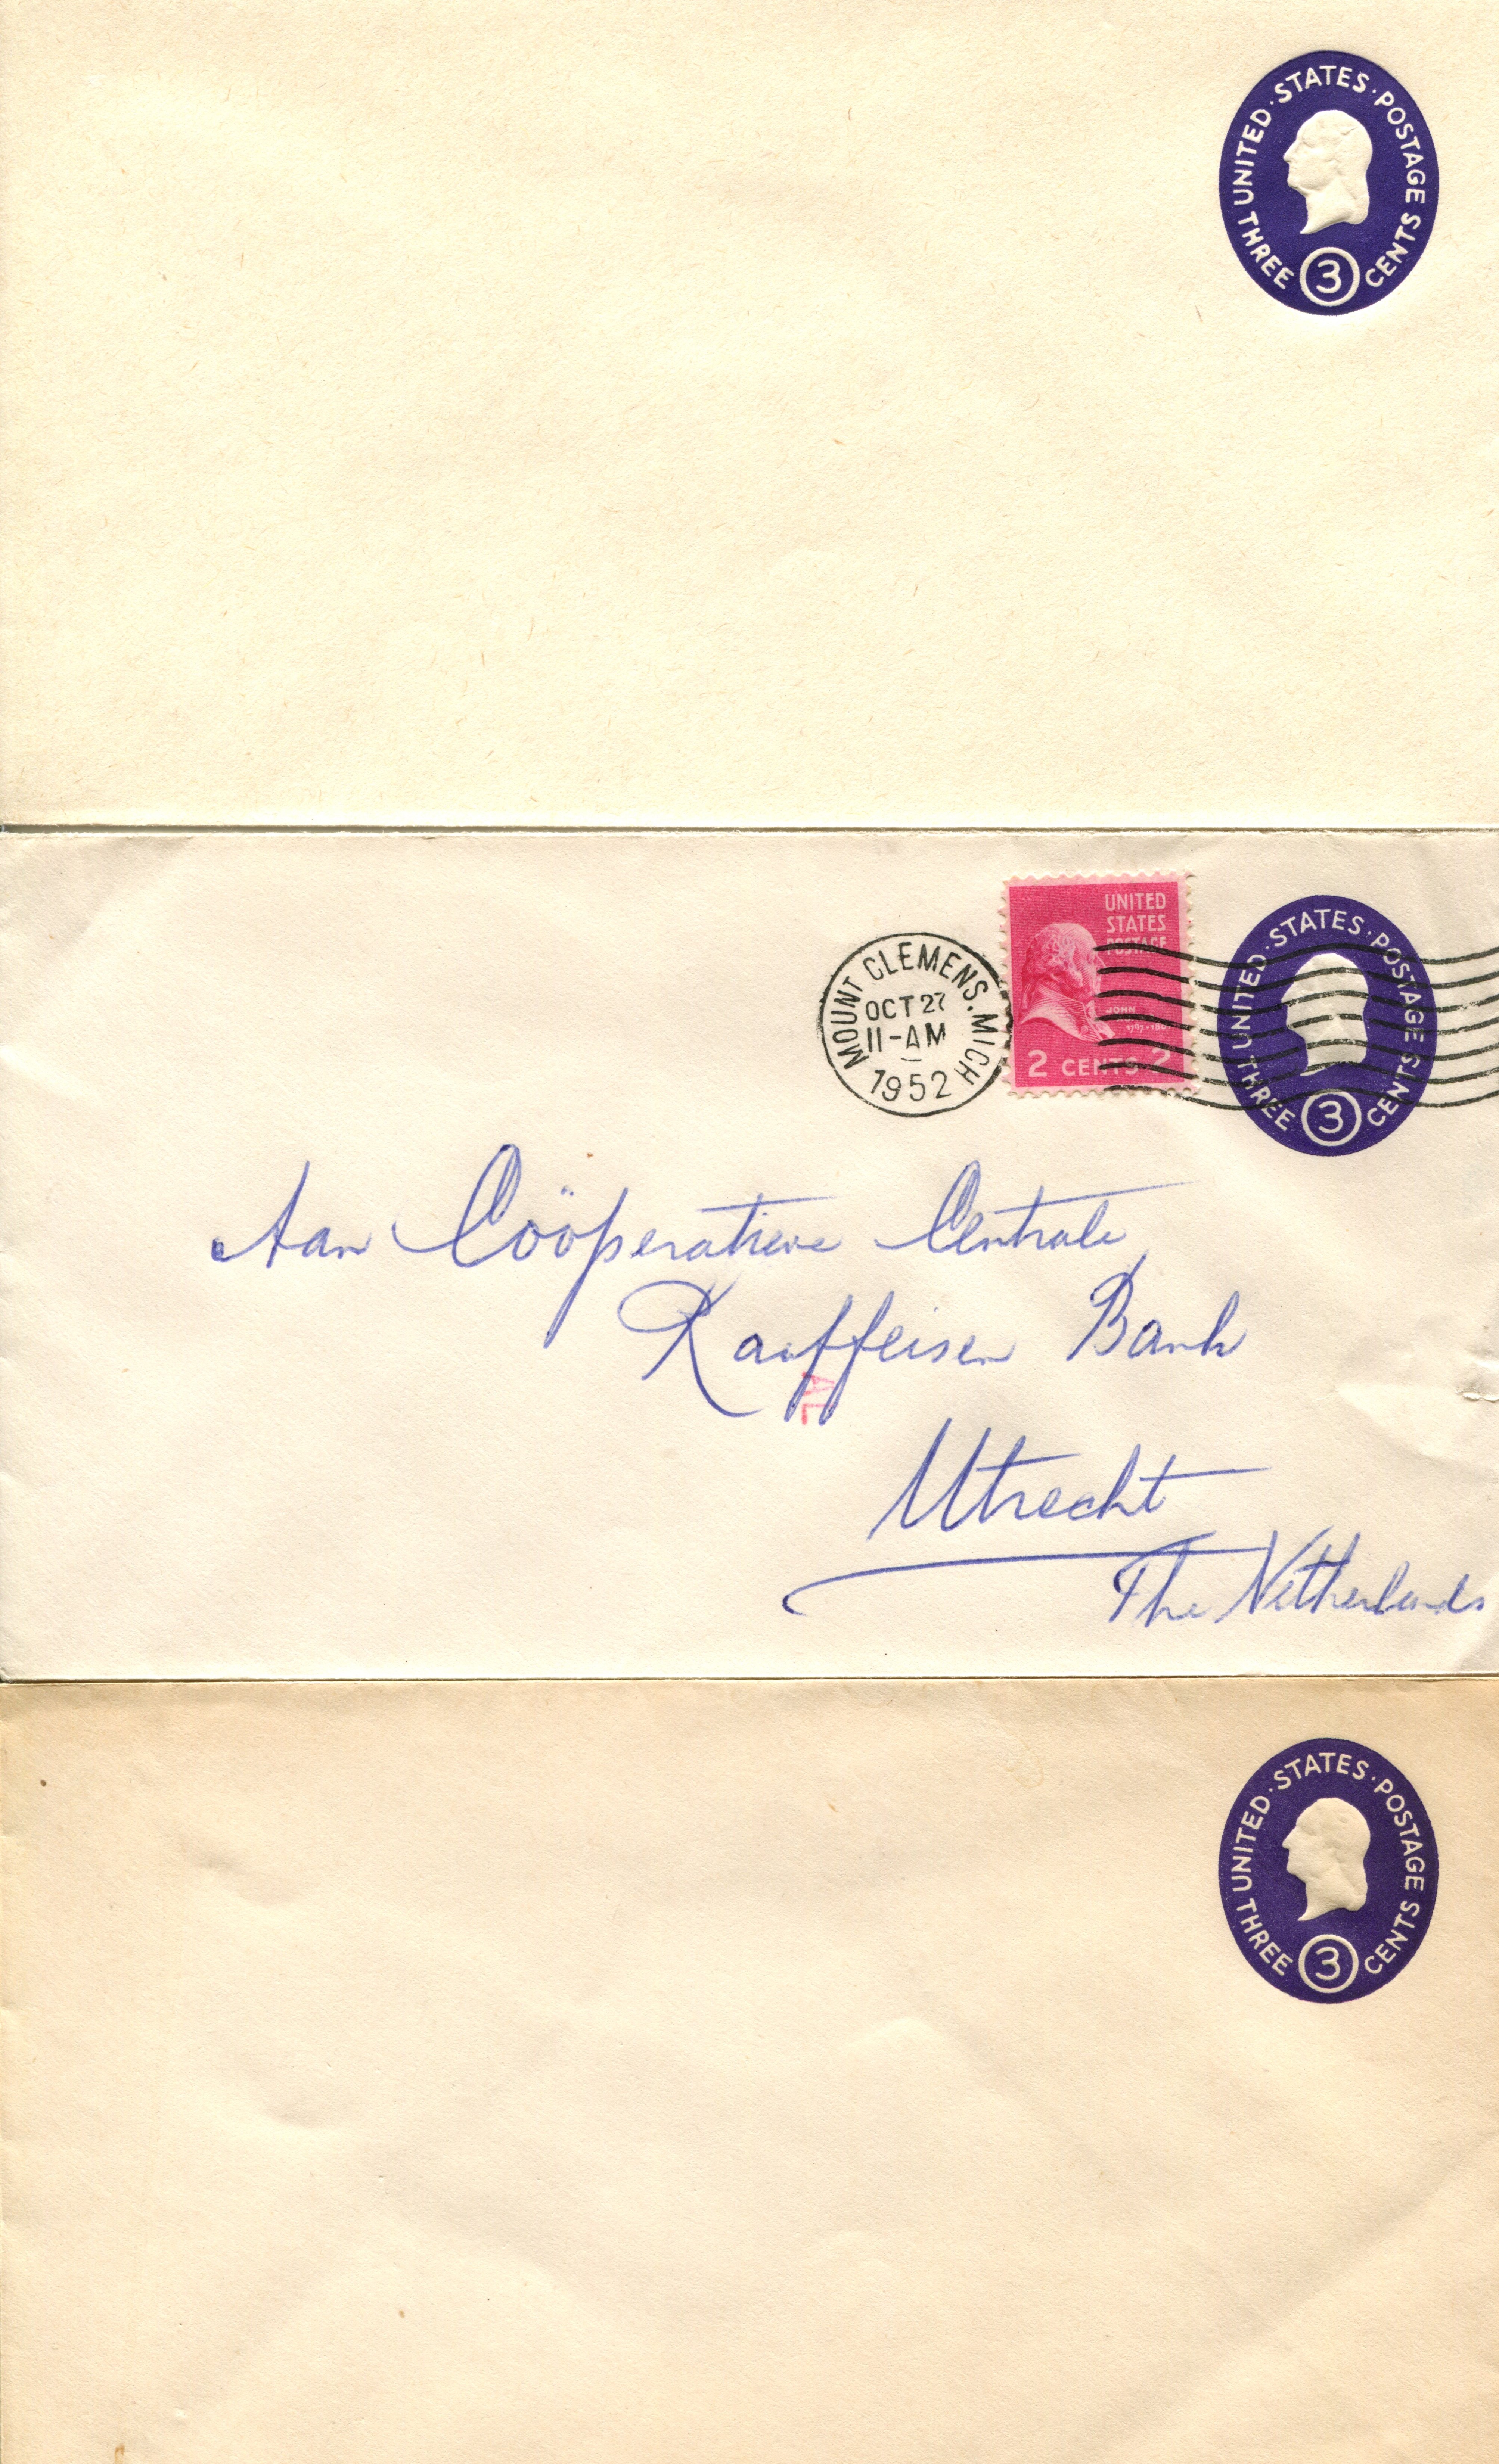 UNITED · STATES · POSTAGE
THREE 3 CENTS
MOUNT CLEMENS. MICH
OCT 27
11-AM
1952
UNITED
STATES
POSTAGE
JOHN
2 CENTS 2
UNITED · STATES · POSTAGE
THREE 3 CENTS
Aan Coöperatieve Centrale
Raiffeisen Bank
AL
Utrecht
The Netherlands
UNITED · STATES · POSTAGE
THREE 3 CENTS